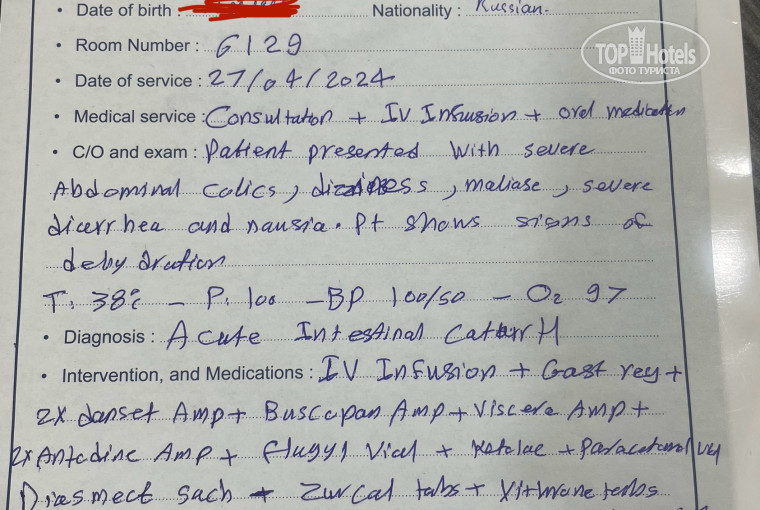 • Date of birth :
Nationality : Russian.
TOP Hotels
ФОТО ТУРИСТА
• Room Number : G129
• Date of service : 27/04/2024
• Medical service : Consultation + IV Infusion + oral medication
• C/O and exam : Patient presented with severe
Abdominal colics, dizziness, maliase, severe
diarrhea and nausia. Pt shows signs of
dehydration
T: 38°c – P: 100 – BP 100/50 – O2 97
• Diagnosis : Acute Intestinal CatarrH
• Intervention, and Medications : IV Infusion + Gast rey +
2X danset Amp + Buscopan Amp + Viscera Amp +
2X Antodine Amp + flugyl Vial + Ketolac + Paracetamol
Diosmect sach + Zurcal tabs +